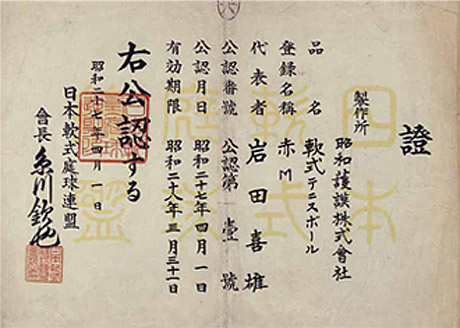 證
製作所 昭和護謨株式會社
品名 軟式テニスボール
登録名稱 赤M
代表者 岩田喜雄
公認番號 公認第壹號
公認月日 昭和二十七年四月一日
有効期限 昭和二十八年三月三十一日
右公認する
昭和二十七年四月一日
日本軟式庭球連盟
會長
日本
軟式
庭
盟